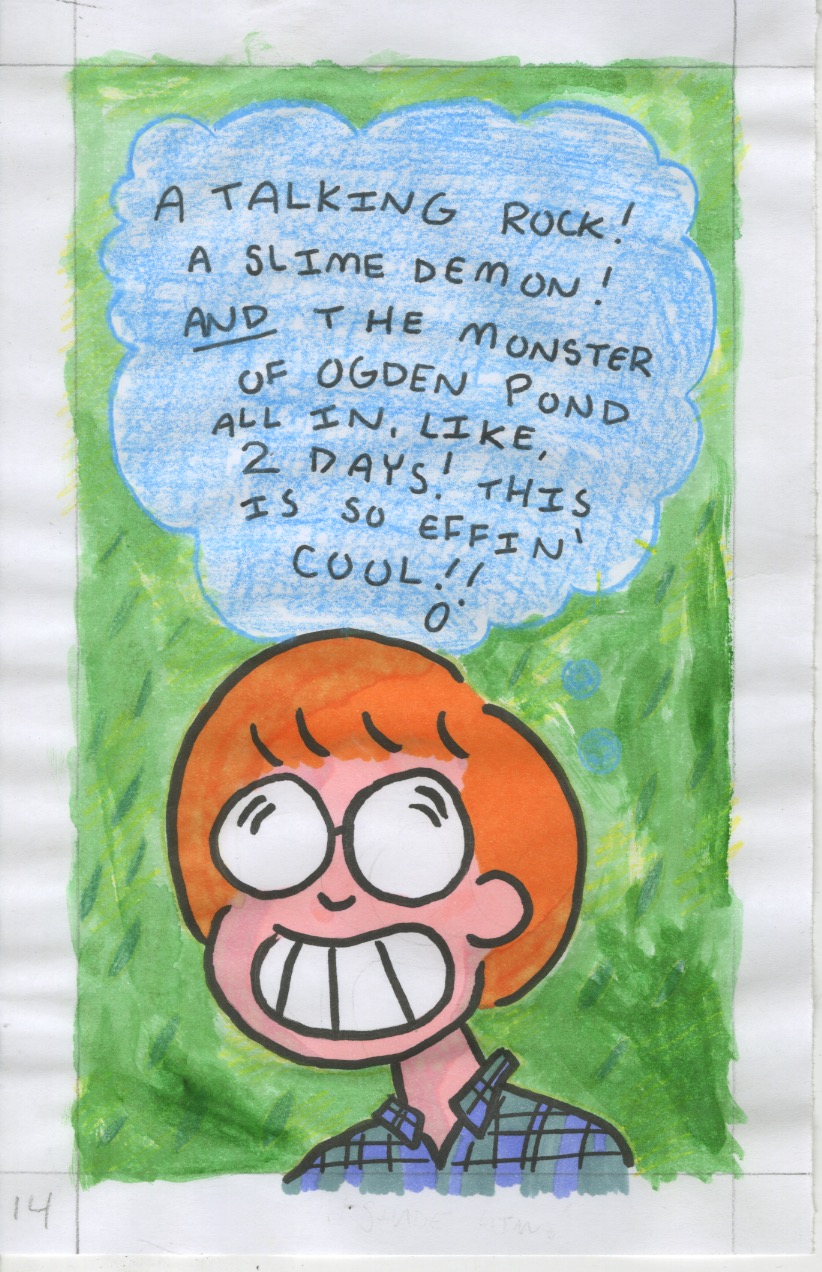 A TALKING ROCK!
A SLIME DEMON!
AND THE MONSTER
OF OGDEN POND
ALL IN, LIKE,
2 DAYS! THIS
IS SO EFFIN'
COOL!!
14